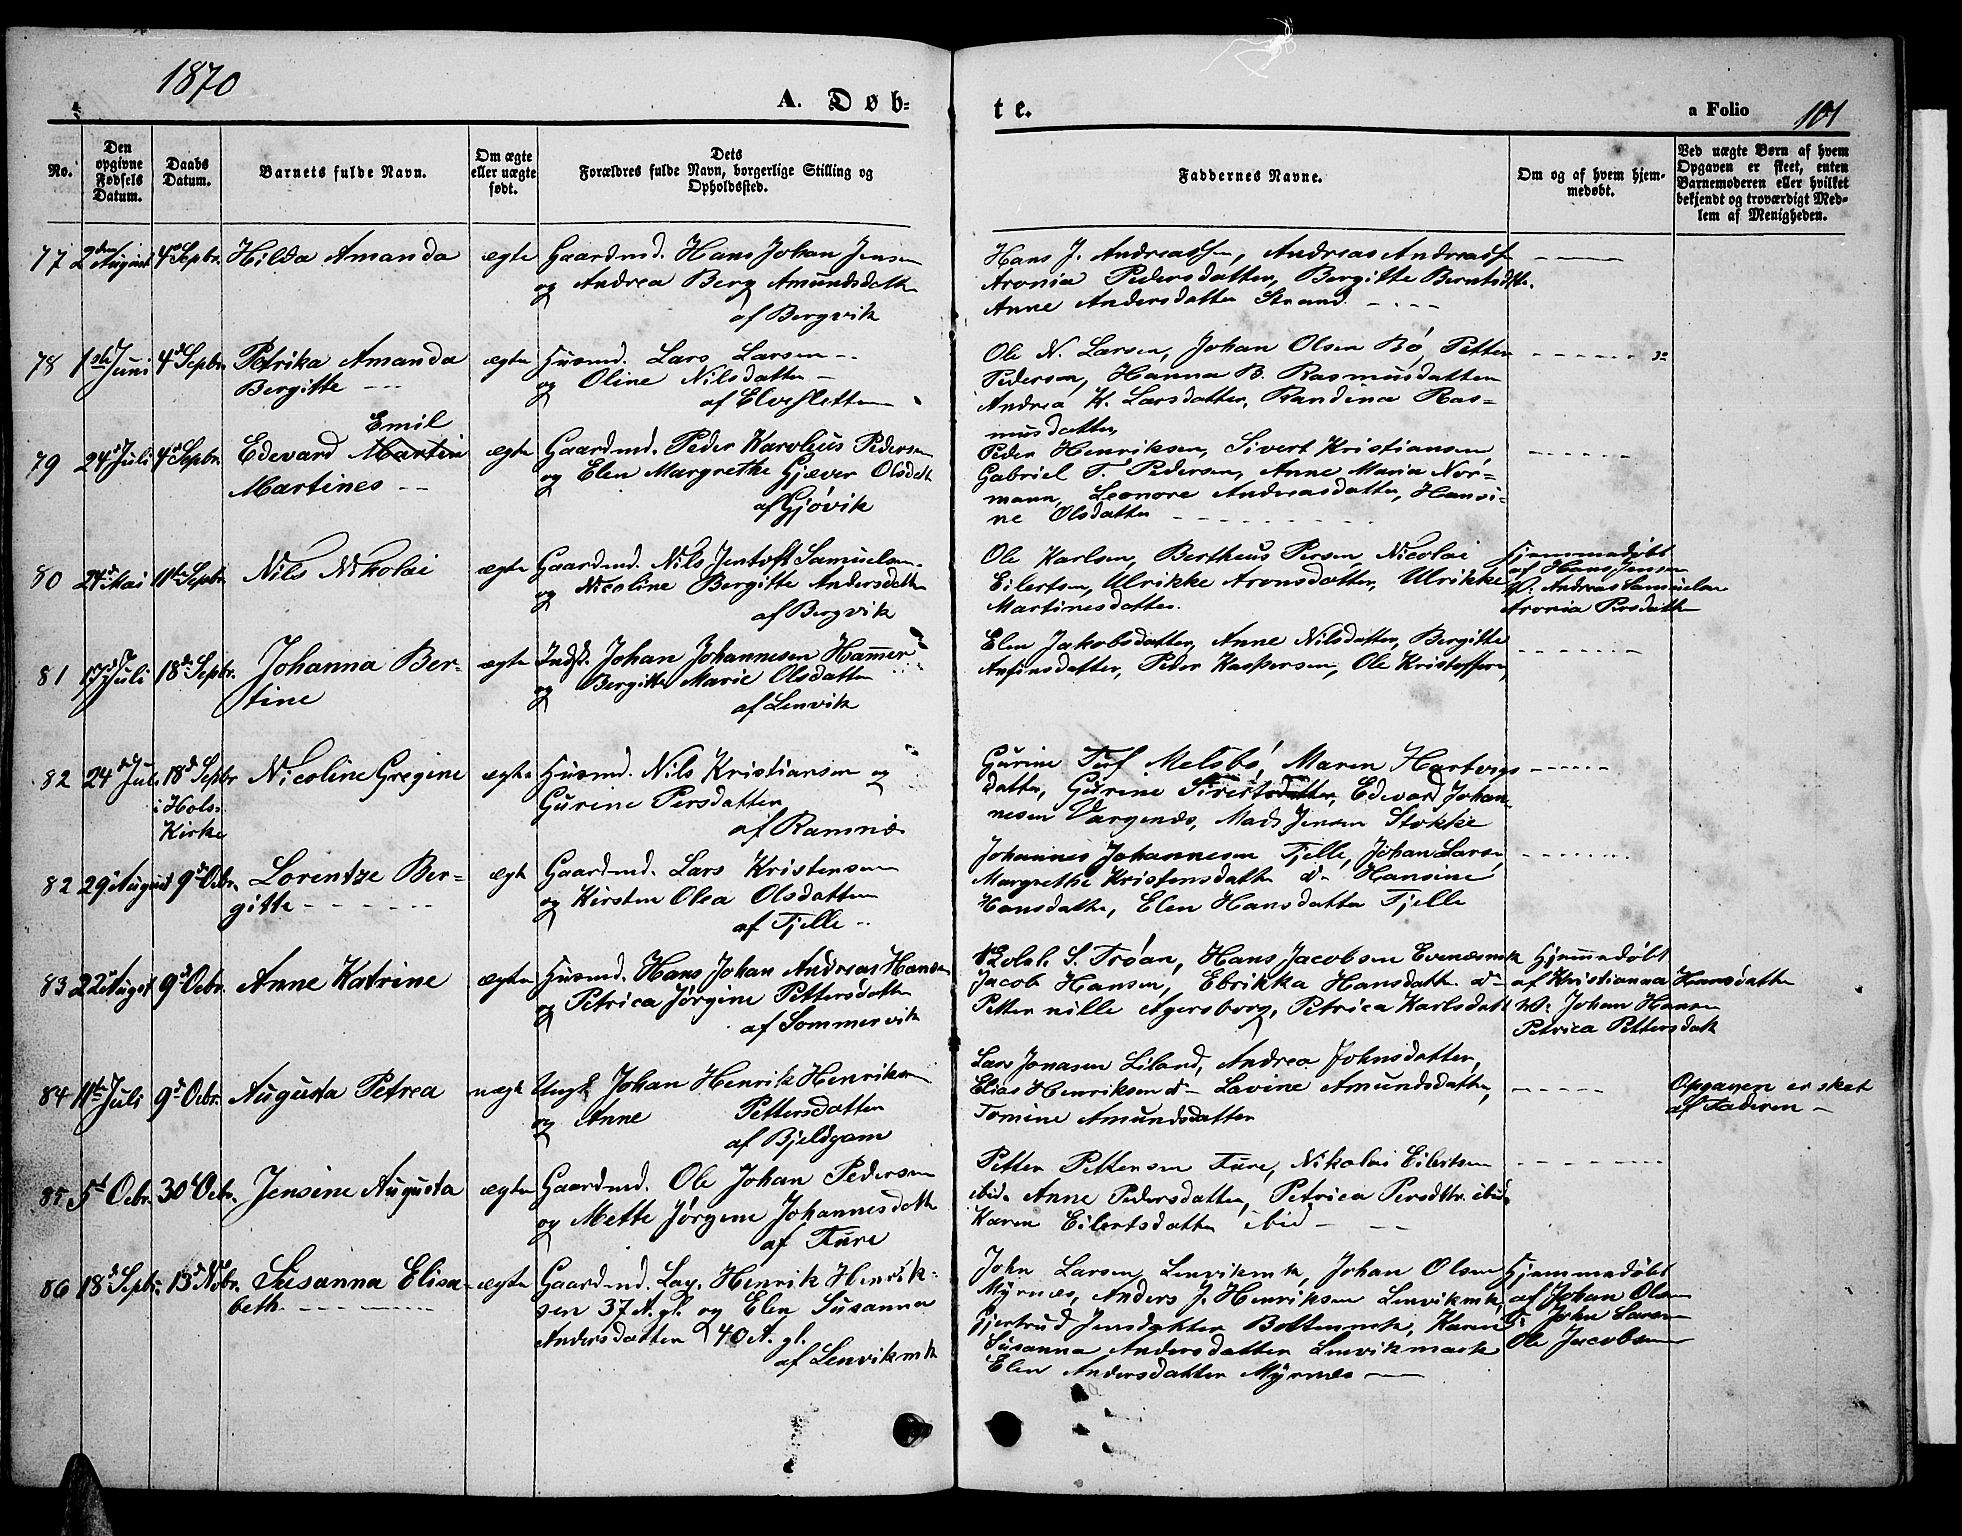 1870
A. Døb-
te.
a Folio 101
No.
Den opgivne Fødsels Datum.
Daabs Datum.
Barnets fulde Navn.
Om ægte eller uægte født.
Dets Forældres fulde Navn, borgerlige Stilling og Opholdssted.
Faddernes Navne.
Om og af hvem hjemmedøbt.
Ved uægte Børn af hvem Opgaven er skeet, enten Barnemoderen eller hvilket bekjendt og troværdigt Medlem af Menigheden.
77 2den August 4de Sepbr. Hilda Amanda ægte Gaardmd. Hans Johan Jensen
og Andrea Berg Amundsdatte
af Bergvik
Hans J. Andreassen, Andreas Andreass
Aronia Pedersdatter, Bergitte Berntsdtte.
Anne Andersdatter Strand
78 1ste Juni 4de Sepbr. Petrika Amanda ægte Husmd. Lars Larsen
Bergitte og Oline Nilsdatter
af Elvesletten
Ole N. Larsen, Johan Olsen Bö, Petter
Pedersen, Hanna B. Rasmusdatter
Andrea K. Larsdatter, Randina Ras=
musdatter
Emil
79 24d Juli 4d Sepbr. Edevard Martin ægte Gaardmd. Peder Karolius Pedersen
Martines og Elen Margrethe Gjæver Olsdatt
af Gjövik
Peder Henriksen, Sivert Kristiansen,
Gabriel T. Pedersen, Anne Maria Nor-
mann, Leonore Andreasdatter, Hansi-
ne Olsdatter
80 Mai 11te Sepbr. Nils Nikolai ægte Gaardmd. Nils Jentoft Samuelsen
og Nicoline Bergitte Andersdatter
af Bergvik
Ole Karlsen, Bertheus Persen, Nicolai
Eilertsen, Ulrikke Aronsdatter, Ulrikke
Martinesdatter.
Hjemmedøbt
af Hans Jensen
V. Andreas Samuelsen
Aronia Persdatter
81 17de Juli 18de Sepbr. Johanna Ber- ægte Indst. Johan Johannesen Hammer
tine og Bergitte Marie Olsdatter
af Lenvik
Elen Jakobsdatter, Anne Nilsdatter, Bergitte
Anfinsdatter, Peder Kaspersen, Ole Kristoffers
82 24d Juli 18d Sepbr Nicoline Gregine ægte Husmd. Nils Kristiansen og
i Hols Kirke Gurine Persdatter
af Ramnæs
Gurine Melsbö, Maren Hartvigs
datter, Gurine Sivertsdatter, Edevard Johan-
nesen Vargenæs, Mads Jensen Stokke
82 29d August 9d Ocbr. Lorentze Ber= ægte Gaardmd. Lars Kristensen
gitte og Kirsten Olea Olsdatter
af Tjelle
Johannes Johannesen Tjelle, Johan Larsen,
Margrethe Kristensdatte do Hansine
Hansdatte, Elen Hansdatter Tjelle
83 22d August 9d Ocbr. Anne Katrine ægte Husmd. Hans Johan Andreas Hansen
og Petrica Jörgine Pettersdatter
af Sommervik
S. Tröan, Hans Jacobsen Evenæsmk
Jacob Hansen, Ebrikka Hansdatte do
Petternille Agersborg, Petrica Karlsdatt
Hjemmedøbt
af Kristianna Hansdatter
V. Johan Hansen
Petrica Pettersdatt
84 11te Juli 9d Ocbr. Augusta Petrea uægt Ungk Johan Henrik Henriksen
og Anne Pettersdatter
af Bjeldgam
Lars Jonasen Liland, Andrea Johnsdatter,
Elias Henriksen do Lavine Amundsdatter,
Tomine Amundsdatter
Opgaven er sket
af Faderen
85 5d Ocbr. 30d Ocbr. Jensine Augusta ægte Gaardmd. Ole Johan Pedersen
og Mette Jörgine Johannesdatte
af Ture
Petter Pettersen Ture, Nikolai Eilertsen
ibid. Anne Pedersdatter, Petrica Persdttr. ibid.
Karen Eilertsdatter ibid
86 18d Sepbr. 13d Nobr. Susanna Elisa- ægte Gaardmd. Lay. Henrik Henrik-
beth. sen 37 A. gl. og Elen Susanna
Andersdatter 40 A. gl.
af Lenvikmk
John Larsen Lenvikmk, Johan Olsen
Myrnæs, Anders J. Henriksen Lenvikmk,
Gjertrud Jensdatter Bottenmk, Karen
Susanna Andersdatter Lenvikmark
Elen Andersdatter Myrnæs
Hjemmedøbt
af Johan Olsen
V. John Larsen
Ole Jacobsen